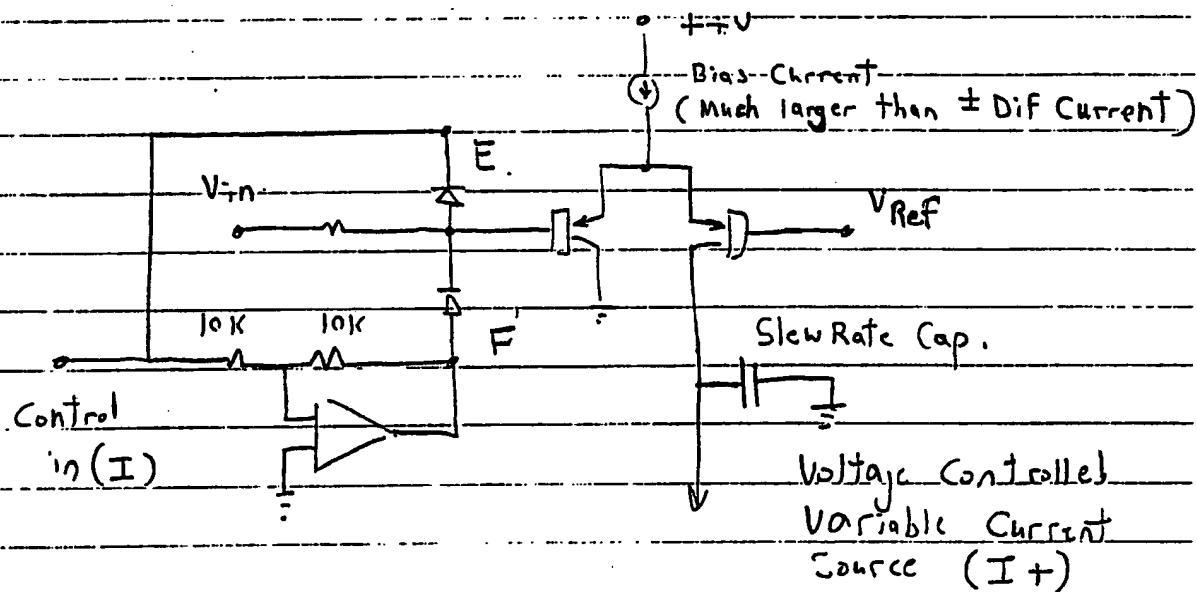 ++V
Bias Current
(Much larger than ± Dif Current)
E.
Vin
VRef
10K 10K
F
Slew Rate Cap.
Control
in (I)
Voltage Controlled
Variable Current
Source (I+)